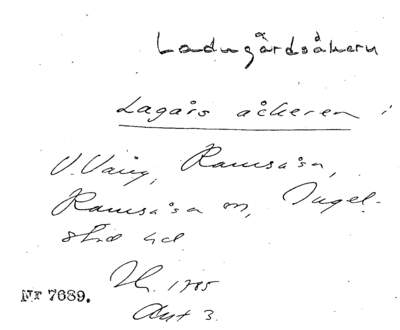 Ladugårdsåkern
Lagårs åckeren i
V. Vång, Ramsåsa,
Ramsåsa sn, Ingel-
stad hd
Nr 7689. Sk. 1785
Akt 3.